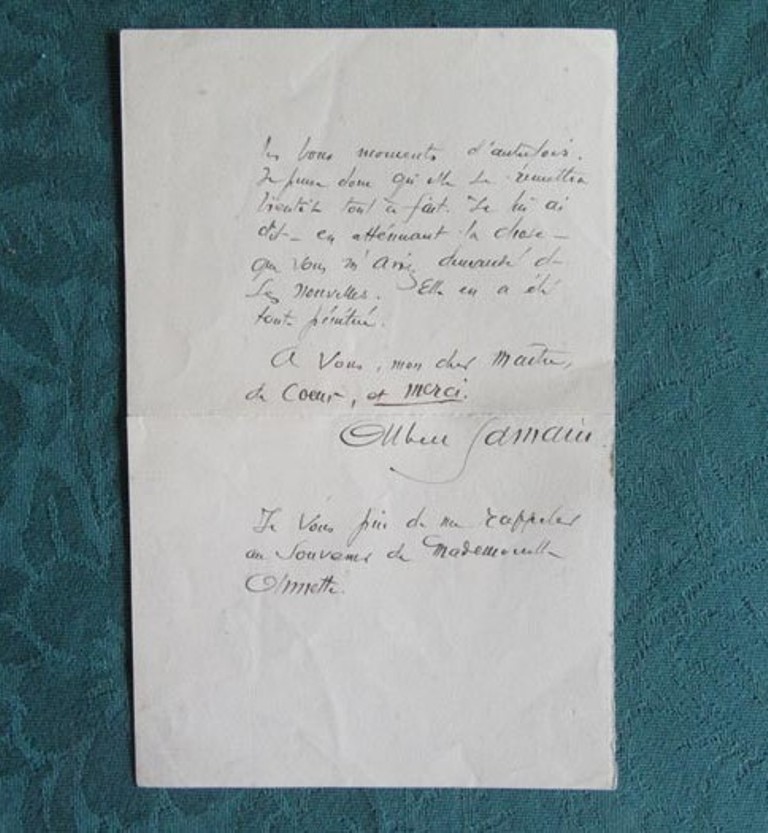 les bons moments d'autrefois.
Je pense donc qu'elle se remettra
bientôt tout à fait. Je lui ai
dit – en atténuant la chose –
que vous m'aviez demandé de
ses nouvelles. Elle en a été
toute pénétrée.
A vous, mon cher Maître,
de Coeur, et merci.
Albert Samain
Je vous prie de me rappeler
au souvenir de Mademoiselle